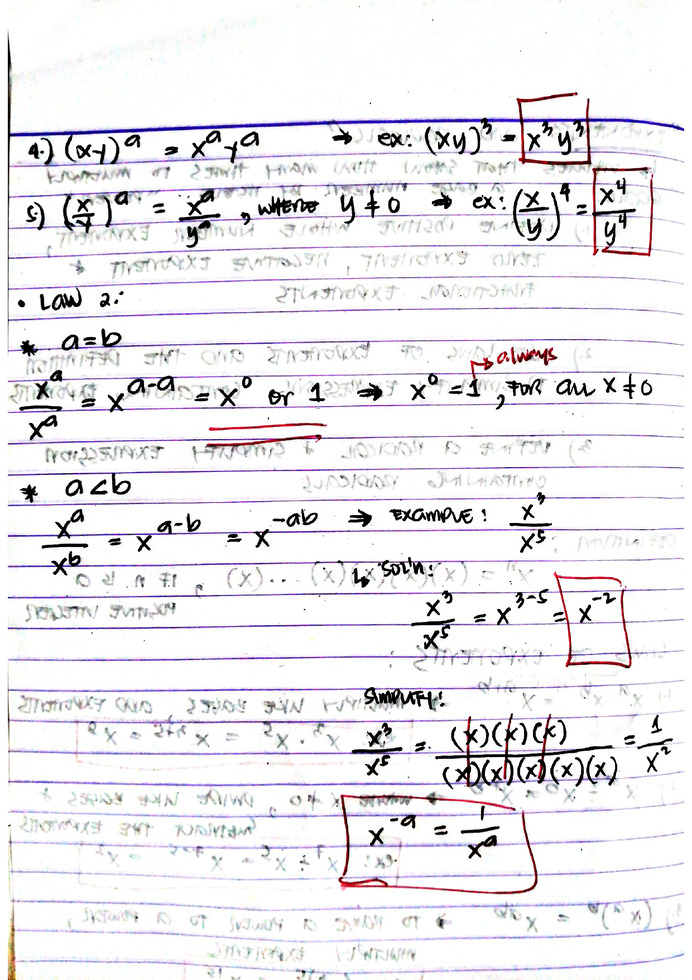 4.) (xy)^a = x^a y^a ⇒ ex: (xy)^3 = x^3 y^3
5) (x/y)^a = x^a/y^a, WHERE y ≠ 0 ⇒ ex: (x/y)^4 = x^4/y^4
• LAW 2:
* a=b
↳ always
x^a/x^a = x^(a-a) = x^0 or 1 ⇒ x^0 = 1, FOR all x ≠ 0
* a<b
x^a/x^b = x^(a-b) = x^(-ab) ⇒ EXAMPLE: x^3/x^5
↳ SOL'n:
x^3/x^5 = x^(3-5) = x^(-2)
SIMPLIFY:
x^3/x^5 = (x)(x)(x)/(x)(x)(x)(x)(x) = 1/x^2
x^(-a) = 1/x^a